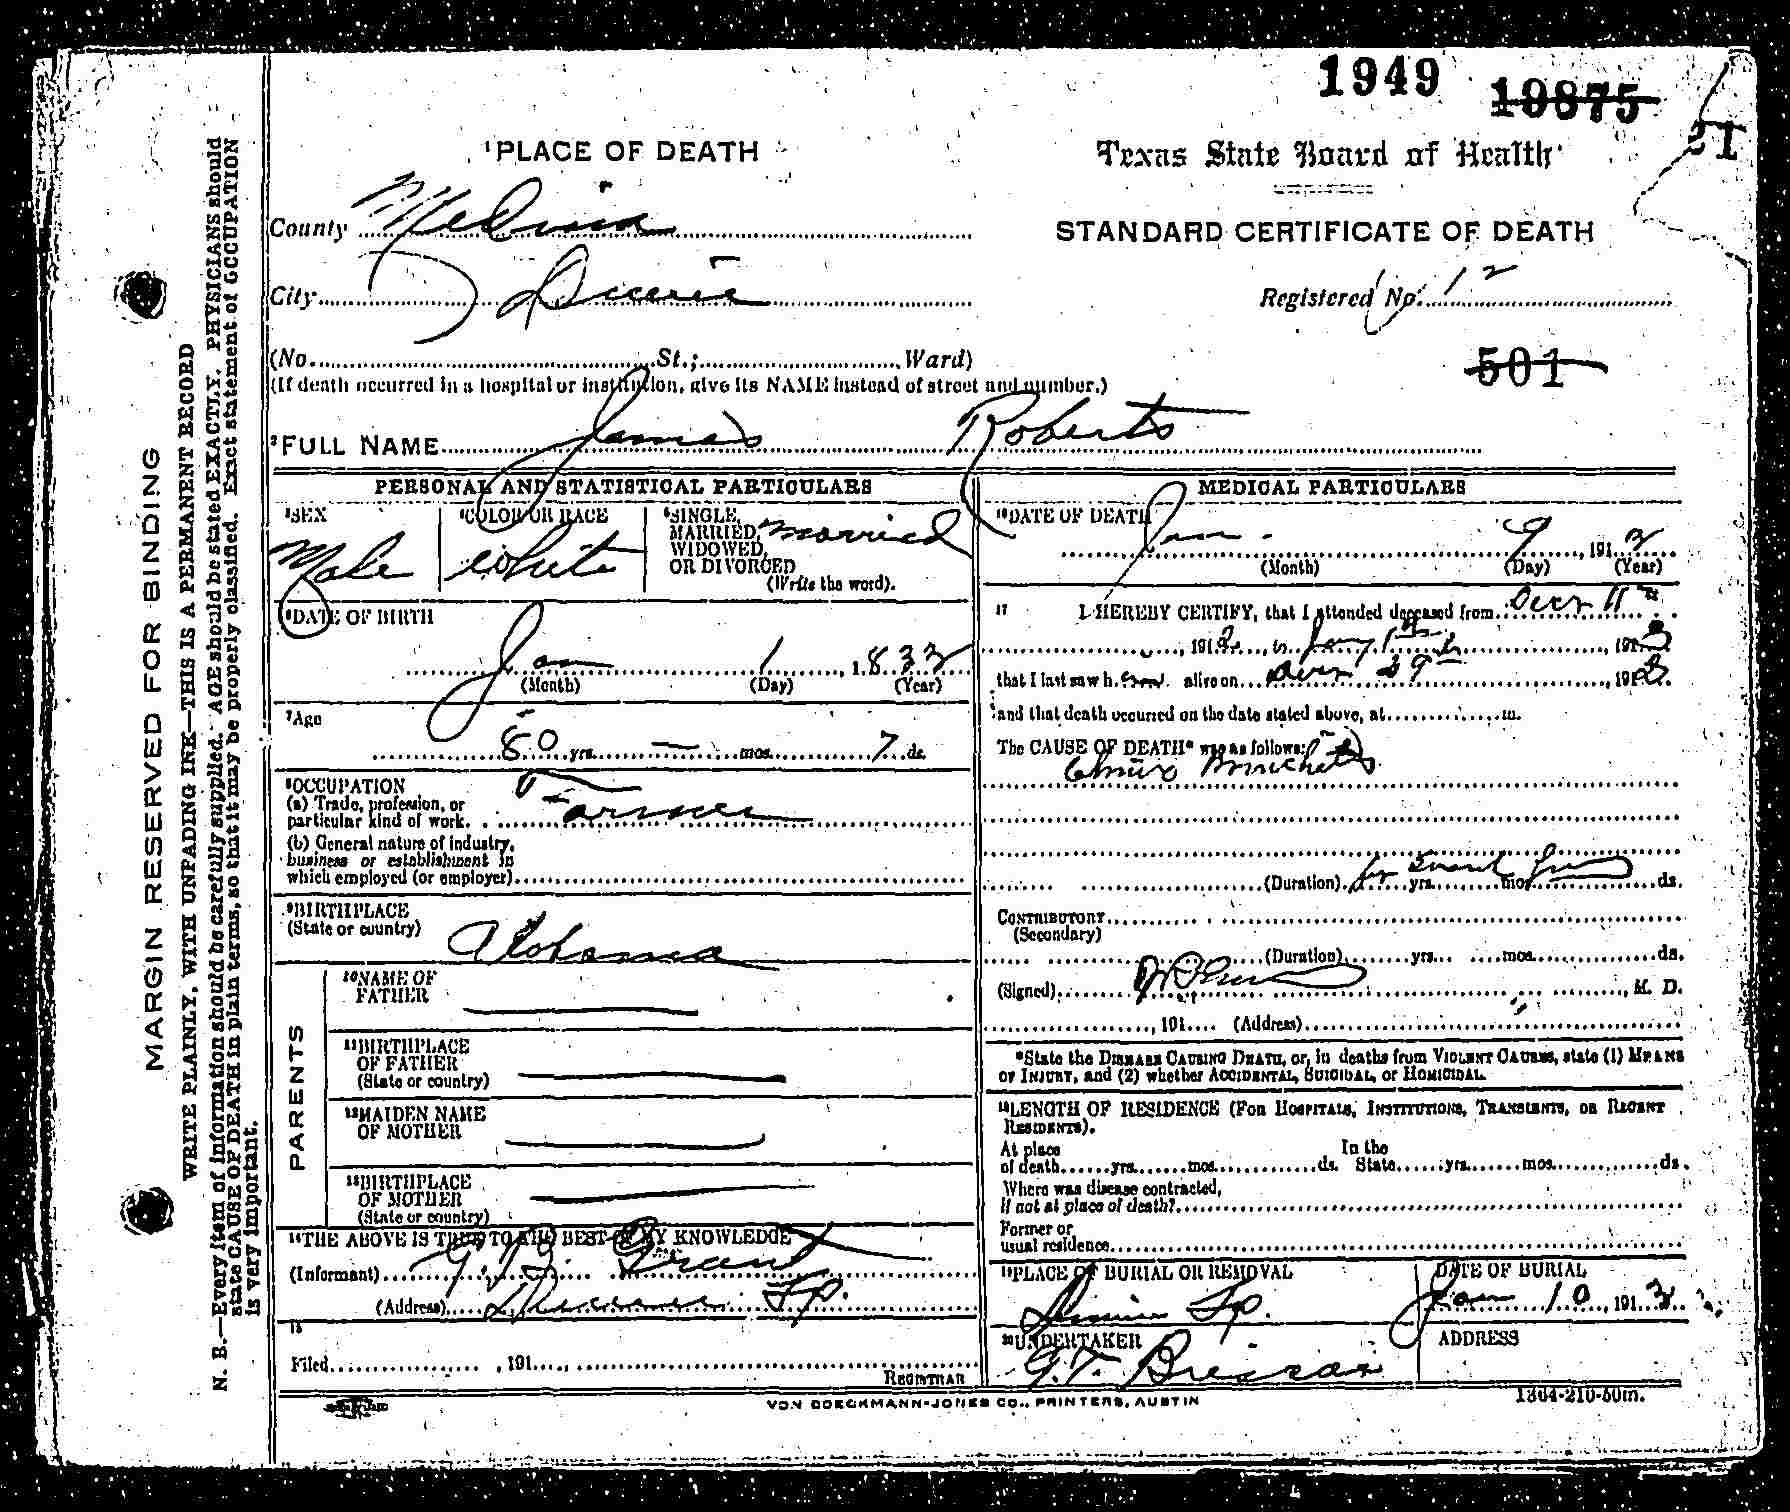 1949 19875
21
¹PLACE OF DEATH
Texas State Board of Health
County Medina
STANDARD CERTIFICATE OF DEATH
City
Registered No. 12
(No. St.; Ward)
501
(If death occurred in a hospital or institution, give its NAME instead of street and number.)
²FULL NAME James Roberts
PERSONAL AND STATISTICAL PARTICULARS
³SEX
Male
⁴COLOR OR RACE
White
⁵SINGLE,
MARRIED,
WIDOWED,
OR DIVORCED
(Write the word).
married
⁶DATE OF BIRTH
Jan 1, 1833
(Month) (Day) (Year)
⁷Age
80 yrs. — mos. 7 ds.
⁸OCCUPATION
(a) Trade, profession, or
particular kind of work. Farmer
(b) General nature of industry,
business or establishment in
which employed (or employer)
⁹BIRTHPLACE
(State or country) Alabama
PARENTS
¹⁰NAME OF
FATHER
¹¹BIRTHPLACE
OF FATHER
(State or country)
¹²MAIDEN NAME
OF MOTHER
¹³BIRTHPLACE
OF MOTHER
(State or country)
¹⁴THE ABOVE IS TRUE TO THE BEST OF MY KNOWLEDGE
(Informant) G. B. Grant
(Address)
¹⁵
Filed , 191
REGISTRAR
MEDICAL PARTICULARS
¹⁶DATE OF DEATH
Jan. 9, 1913
(Month) (Day) (Year)
17 I HEREBY CERTIFY, that I attended deceased from Decr 11th
, 1912, to Jany 1st, 1913
that I last saw h im alive on Decr 29th, 1912
and that death occurred on the date stated above, at m.
The CAUSE OF DEATH* was as follows:
Bronchitis
(Duration) for several years yrs. mos. ds.
CONTRIBUTORY
(Secondary)
(Duration) yrs. mos. ds.
(Signed) , M. D.
, 191 (Address)
*State the DISEASE CAUSING DEATH, or, in deaths from VIOLENT CAUSES, state (1) MEANS
OF INJURY, and (2) whether ACCIDENTAL, SUICIDAL, or HOMICIDAL.
¹⁸LENGTH OF RESIDENCE (FOR HOSPITALS, INSTITUTIONS, TRANSIENTS, OR RECENT
RESIDENTS).
At place In the
of death yrs. mos. ds. State yrs. mos. ds.
Where was disease contracted,
If not at place of death?
Former or
usual residence
¹⁹PLACE OF BURIAL OR REMOVAL
DATE OF BURIAL
Jan 10, 1913
²⁰UNDERTAKER
G. T.
ADDRESS
VON BOECKMANN-JONES CO., PRINTERS, AUSTIN
1364-210-50m.
MARGIN RESERVED FOR BINDING
WRITE PLAINLY, WITH UNFADING INK—THIS IS A PERMANENT RECORD
N. B.—Every item of information should be carefully supplied. AGE should be stated EXACTLY. PHYSICIANS should
state CAUSE OF DEATH in plain terms, so that it may be properly classified. Exact statement of OCCUPATION
is very important.